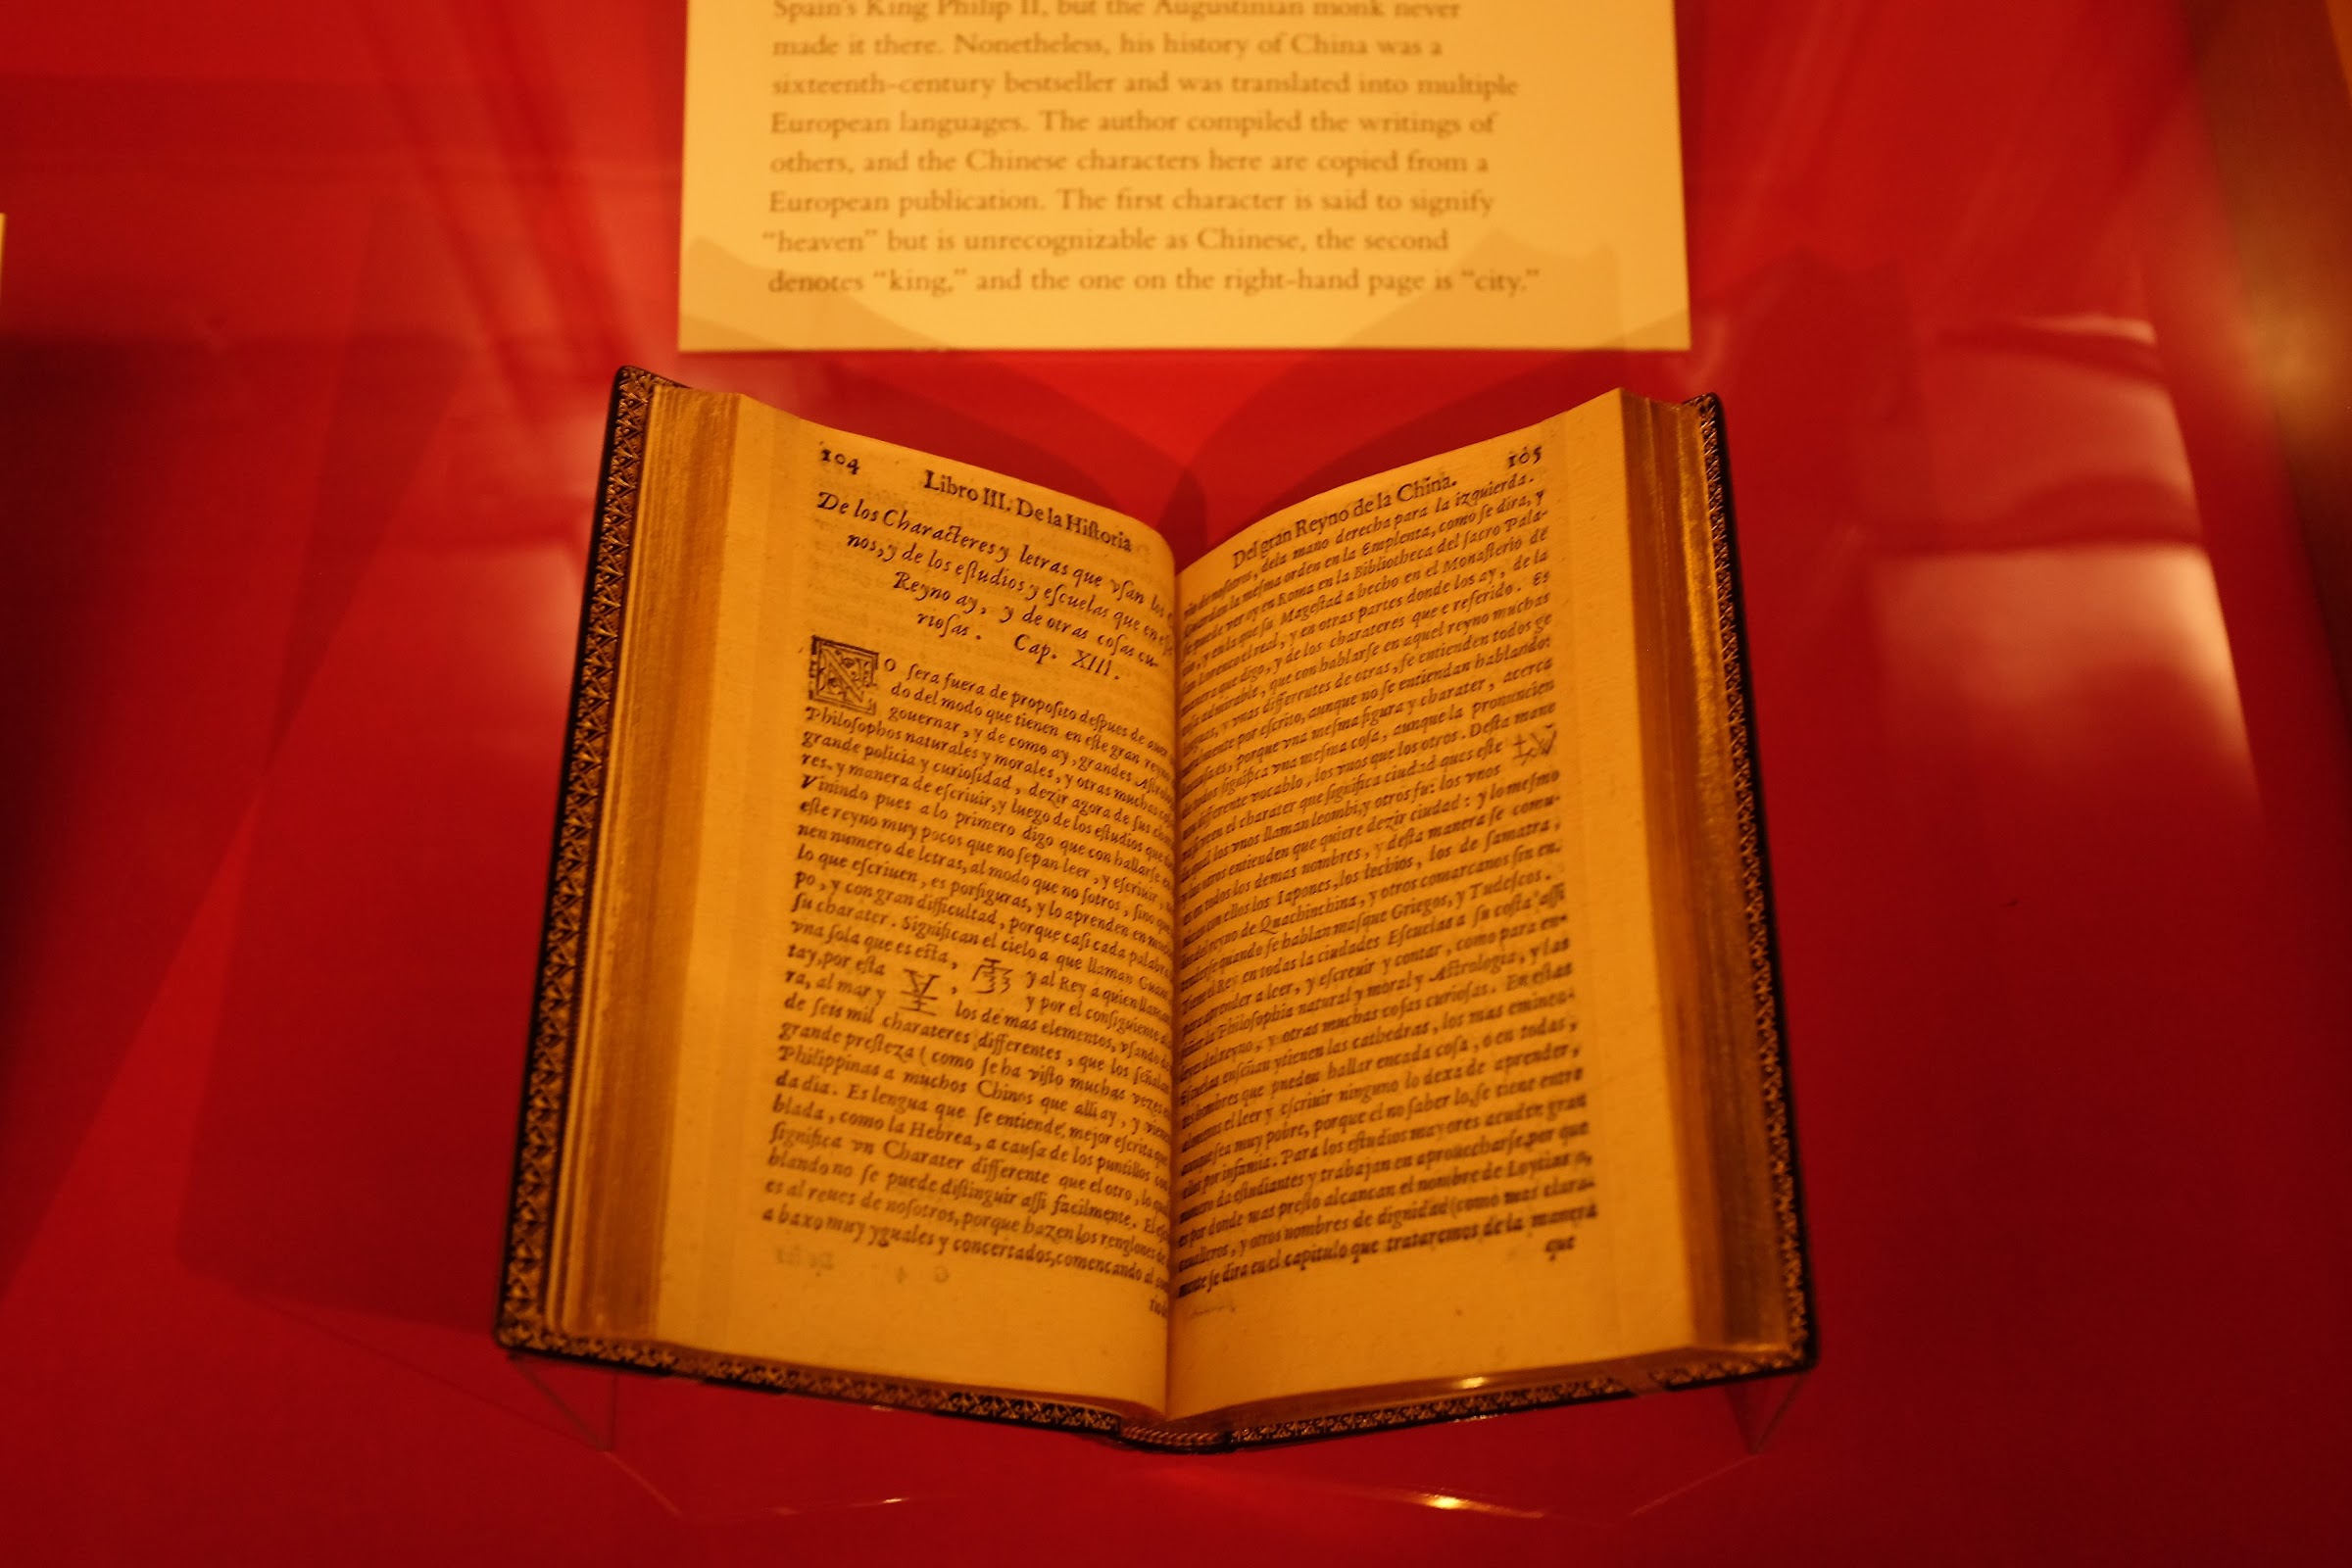 Spain's King Philip II, but the Augustinian monk never
made it there. Nonetheless, his history of China was a
sixteenth-century bestseller and was translated into multiple
European languages. The author compiled the writings of
others, and the Chinese characters here are copied from a
European publication. The first character is said to signify
“heaven” but is unrecognizable as Chinese, the second
denotes “king,” and the one on the right-hand page is “city.”
104
Libro III. De la Hiſtoria
De los Characteres y letras que vſan los
nos, y de los eſtudios y eſcuelas que en eſte
Reyno ay, y de otras coſas cu-
rioſas. Cap. XIII.
NO ſera fuera de propoſito deſpues de auer
do del modo que tienen en eſte gran reyno
gouernar, y de como ay, grandes
Philoſophos naturales y morales, y otras muchas
grande policia y curioſidad, dezir agora de ſus
res, y manera de eſcriuir, y luego de los eſtudios que
Vinindo pues a lo primero digo que con hallarſe
eſte reyno muy pocos que no ſepan leer, y eſcriuir,
nen numero de letras, al modo que no ſotros, ſino que
lo que eſcriuen, es por figuras, y lo aprenden en
po, y con gran difficultad, porque caſi cada palabra
ſu charater. Significan el cielo a que llaman
vna ſola que es eſta,
y al Rey a quien llaman
tay, por eſta
y por el conſiguiente
ra, al mar y
los de mas elementos, vſando
de ſeis mil charateres differentes, que los ſeñalan
grande preſteza (como ſe ha viſto muchas vezes
Philippinas a muchos Chinos que alli ay, y vienen
da dia. Es lengua que ſe entiende mejor eſcrita que
blada, como la Hebrea, a cauſa de los puntillos
ſignifica vn Charater differente que el otro, lo
blando no ſe puede diſtinguir aſſi facilmente.
es al reues de noſotros, porque hazen los renglones de
a baxo muy yguales y concertados, comencando al
105
Del gran Reyno de la China.
de la mano derecha para la izquierda.
Guardan la meſma orden en la Emplenta, como ſe dira, y
ſe puede ver oy en Roma en la Bibliotheca del ſacro Pala-
y en la que ſu Mageſtad a hecho en el Monaſterio de
Lorenco el real, y en otras partes donde los ay, de la
manera que digo, y de los charateres que e referido. Es
admirable, que con hablarſe en aquel reyno muchas
y vnas differentes de otras, ſe entienden todos ge
por eſcrito, aunque no ſe entiendan hablando:
porque vna meſma figura y charater, acerca
de todos ſignifica vna meſma coſa, aunque la pronuncien
differente vocablo, los vnos que los otros. Deſta mane
el charater que ſignifica ciudad ques eſte
los vnos llaman leombi, y otros fu: los vnos
otros entienden que quiere dezir ciudad: y lo meſmo
en todos los demas nombres, y deſta manera ſe comu-
con ellos los Iapones, los lechios, los de ſamatra,
del reyno de Quachinchina, y otros comarcanos ſin en
quando ſe hablan mas que Griegos, y Tudeſcos.
Tiene el Rey en todas la ciudades Eſcuelas a ſu coſta aſſi
para aprender a leer, y eſcreuir y contar, como para en-
la Philoſophia natural y moral y Aſtrologia, y las
leyes del reyno, y otras muchas coſas curioſas. En eſtas
Eſcuelas enſeñan y tienen las cathedras, los mas eminen-
hombres que pueden hallar en cada coſa, o en todas,
el leer y eſcriuir ninguno lo dexa de aprender,
aunque ſea muy pobre, porque el no ſaber lo, ſe tiene entre
ellos por infamia. Para los eſtudios mayores acuden gran
numero da eſtudiantes y trabajan en aprouecharſe, por que
es por donde mas preſto alcancan el nombre de Loytias o,
y otros nombres de dignidad (como mas clara-
mente ſe dira en el capitulo que trataremos de la manera
que